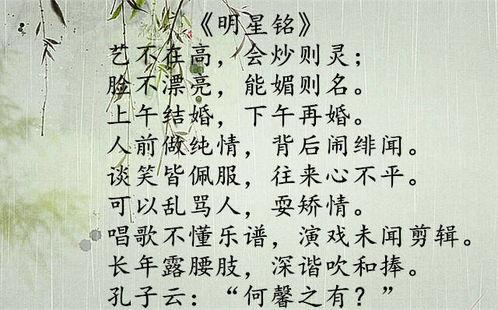 《明星铭》
艺不在高，会炒则灵；
脸不漂亮，能媚则名。
上午结婚，下午再婚。
人前做纯情，背后闹绯闻。
谈笑皆佩服，往来心不平。
可以乱骂人，耍矫情。
唱歌不懂乐谱，演戏未闻剪辑。
长年露腰肢，深谐吹和捧。
孔子云：“何馨之有？”